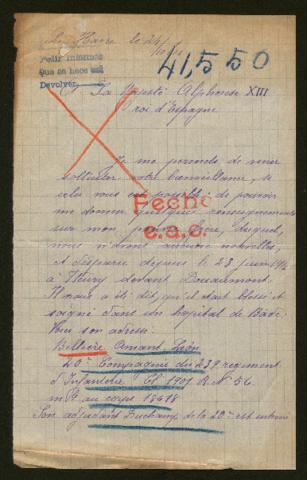 Le Havre le 24/
41,550
Pedir informes
que se hace
Devolver
A Sa Majesté Alphonse XIII
roi d'Espagne
Je me permets de venir
solliciter votre bienveillance, si
cela vous est possible, de pouvoir
me donner quelques renseignements
sur mon pauvre frère, duquel
nous n'avons aucunes nouvelles,
et disparu depuis le 23 juin 1916
à Fleury devant Douaumont.
Il nous a été dit, qu'il était blessé et
soigné dans un hopital de Bade.
Voici son adresse:
Fecho
e.a.c.
Bellière Armant Léon
20me Compagnie du 239 regiment
d'Infanterie Cl 1901 R N° 56
m le au corps 18618
Son adjudant Duchamp de la 20me est interné